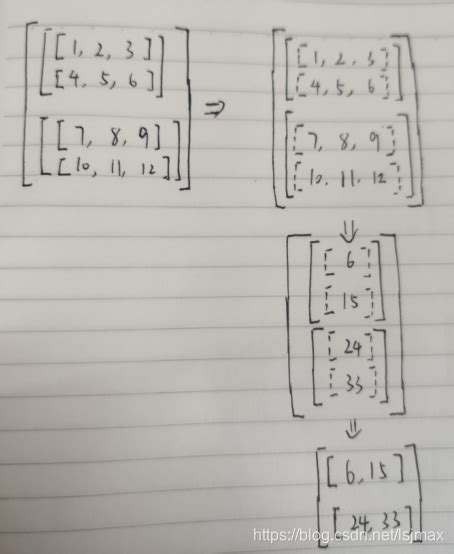 [[[1, 2, 3]
[4, 5, 6]]
[[7, 8, 9]
[10, 11, 12]]]
⇒
[[[1, 2, 3]
[4, 5, 6]]
[[7, 8, 9]
[10, 11, 12]]]
⇓
[[[6]
[15]]
[[24]
[33]]]
⇓
[[6, 15]
[24, 33]]
https://blog.csdn.net/lsjmax